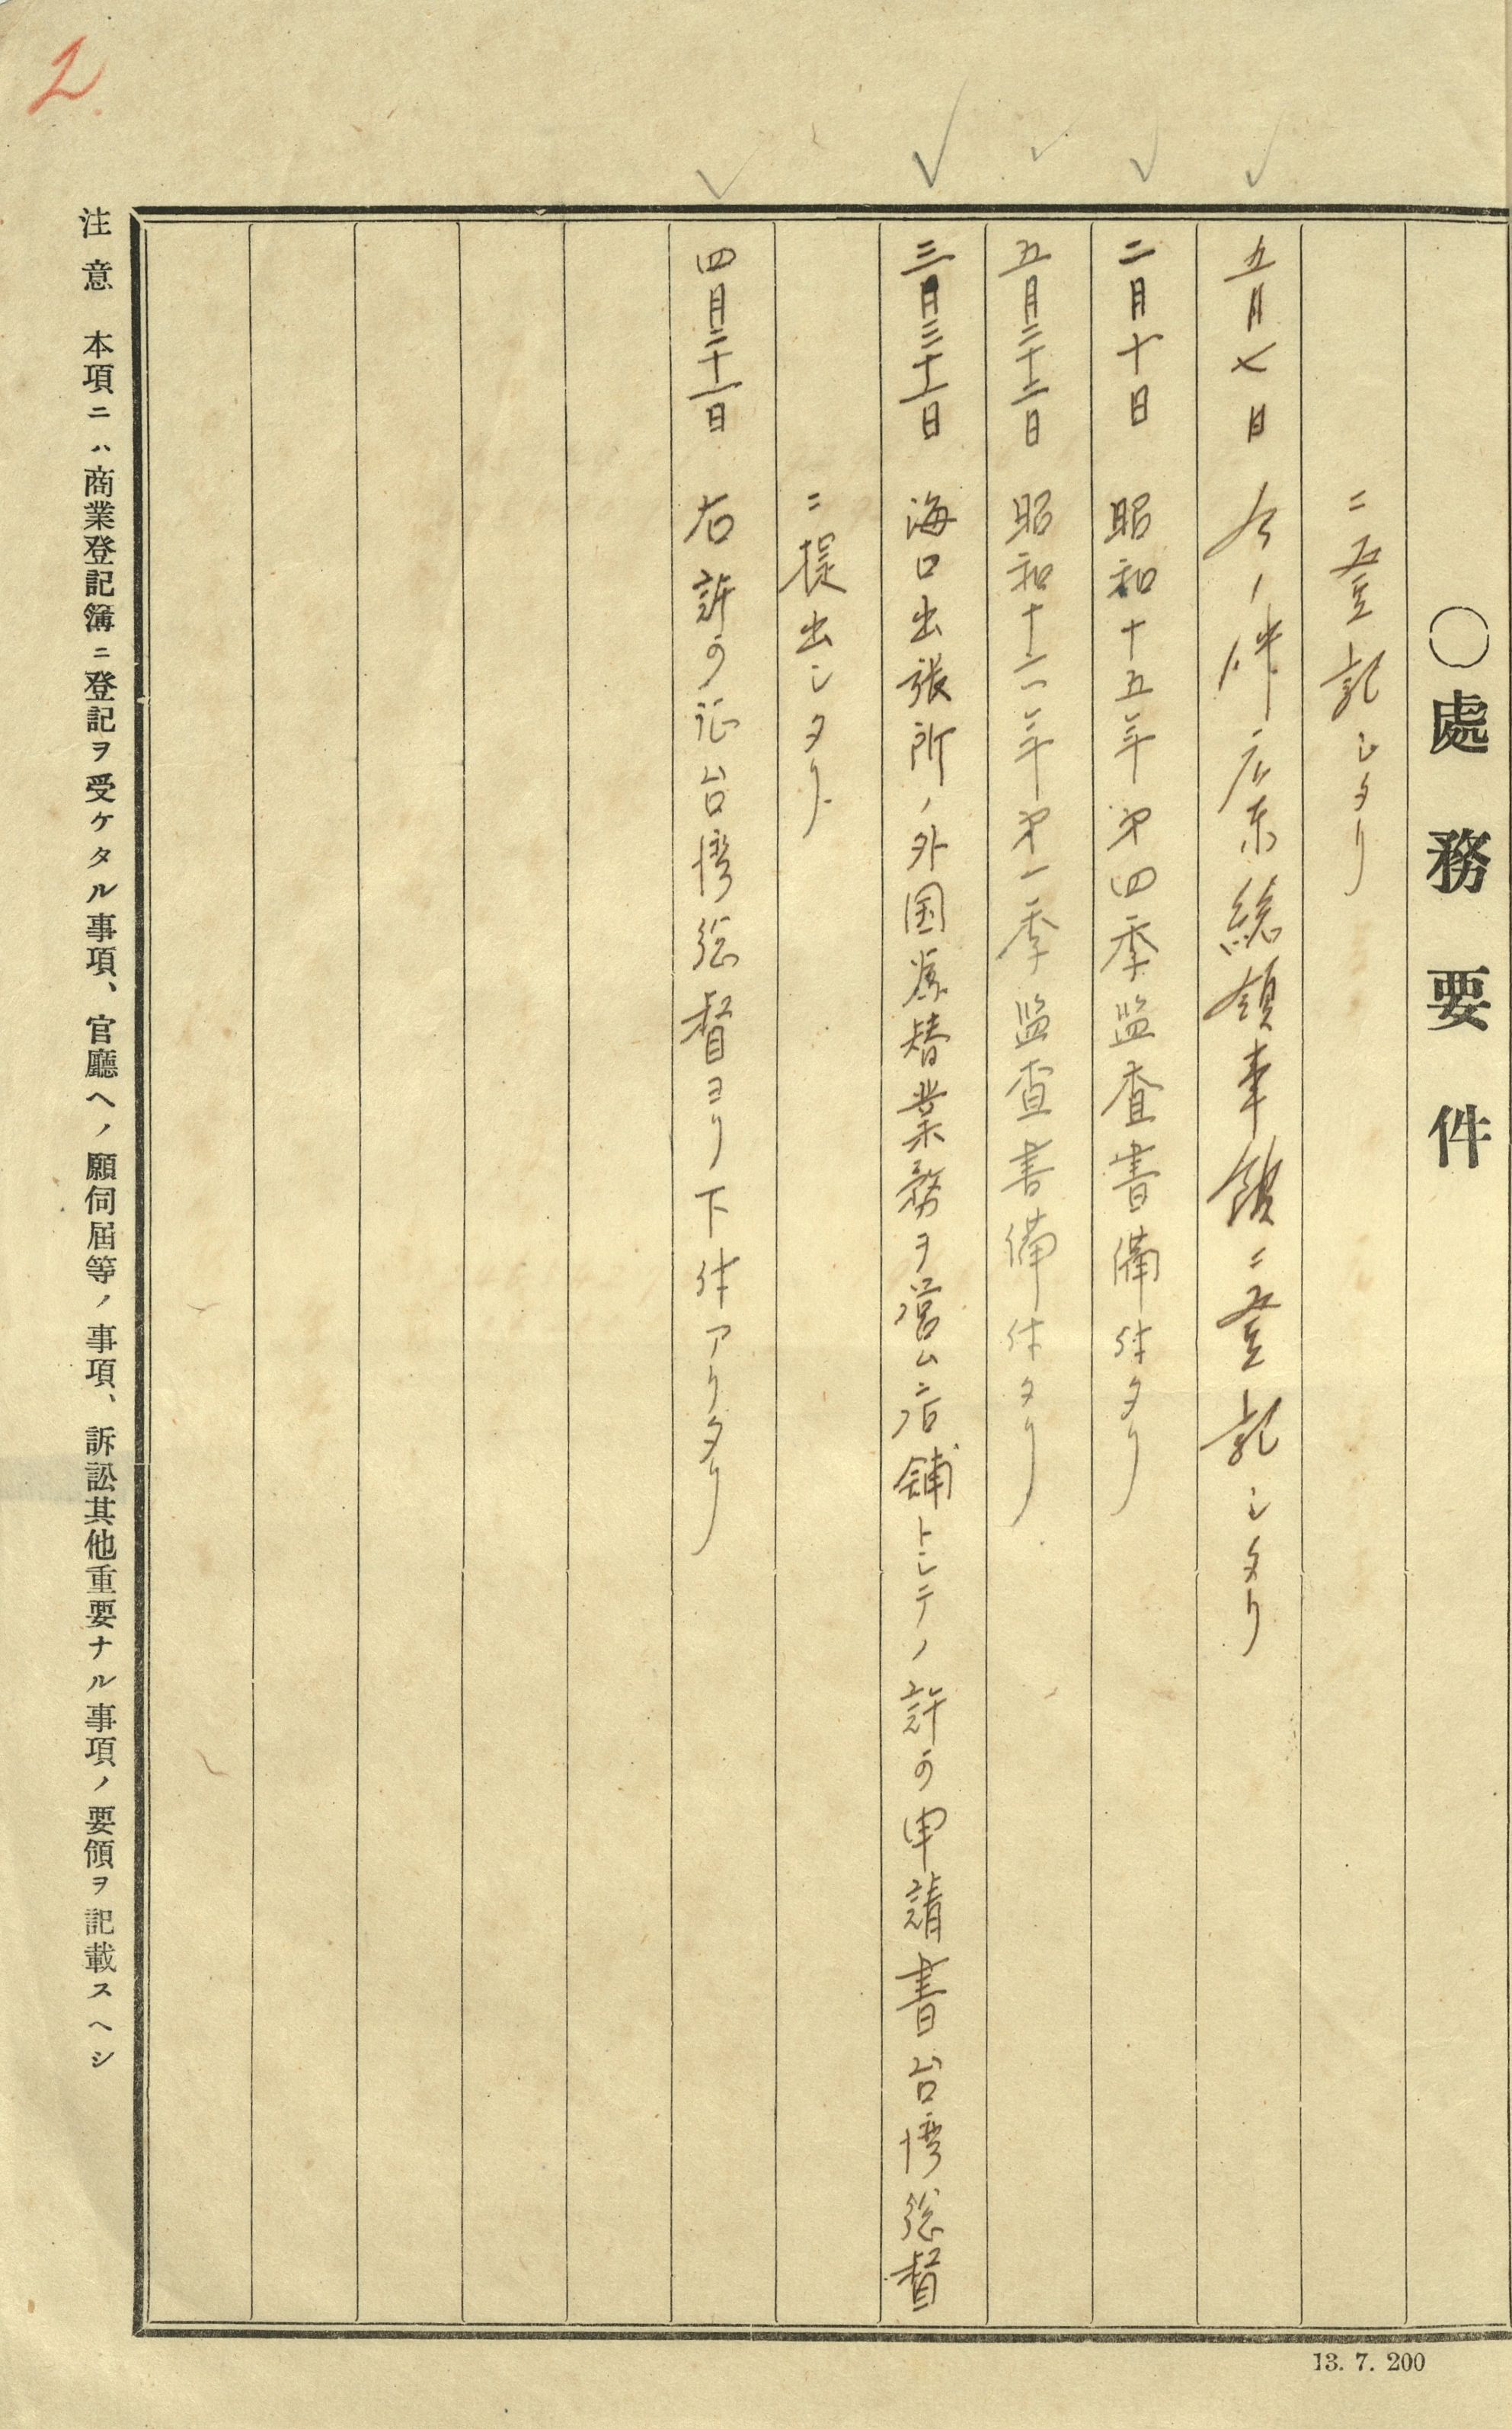 2
〇處務要件
ニ登記シタリ
五月七日 仝ノ件広東総領事館ニ登記シタリ
二月十日 昭和十五年第四季監査書備付タリ
五月二十二日 昭和十六年第一季監査書備付タリ
三月三十一日 海口出張所ノ外国為替業務ヲ営ム店舗トシテノ許可申請書台湾総督
ニ提出シタリ
四月二十一日 右許可証台湾総督ヨリ下付アリタリ
注意 本項ニハ商業登記簿ニ登記ヲ受ケタル事項、官廳ヘノ願伺屆等ノ事項、訴訟其他重要ナル事項ノ要領ヲ記載スヘシ
13. 7. 200